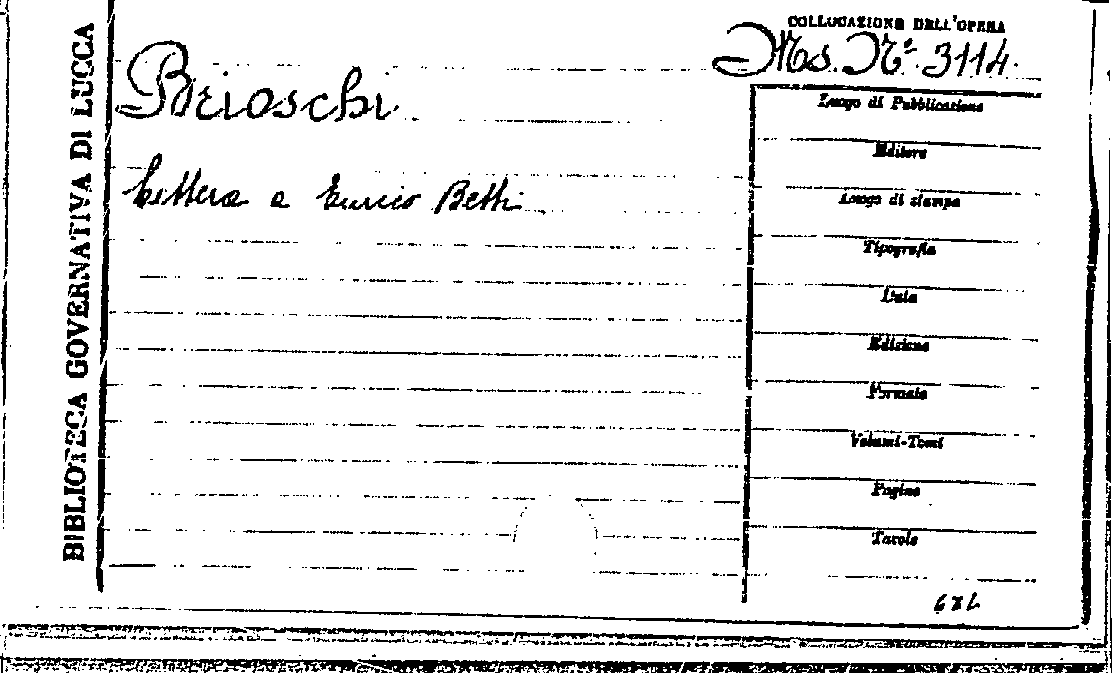 BIBLIOTECA GOVERNATIVA DI LUCCA
COLLOCAZIONE DELL'OPERA
Ms. N.° 3114.
Brioschi
Lettera a Enrico Betti
Luogo di Pubblicazione
Editore
Luogo di stampa
Tipografia
Data
Edizione
Formato
Volumi-Tomi
Pagine
Tavole